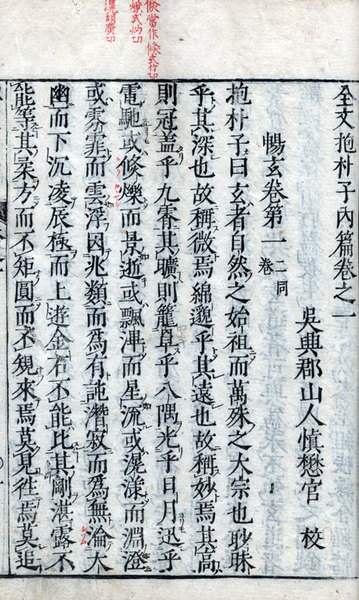 全文抱朴子內篇卷之一
吳興郡山人慎懋官 校
暢玄卷第一 二同卷
抱朴子曰玄者自然之始祖而萬殊之大宗也眇眛
乎其深也故稱微焉綿邈乎其遠也故稱妙焉其高
則冠蓋乎九霄其曠則籠罩乎八隅光乎日月迅乎
電馳或倏爍而景逝或飄滭而星流或滉漾而淵澄
或雰霏而雲浮因兆類而為有託潛寂而為無淪大
幽而下沉凌辰極而上遊金石不能比其剛湛露不
能等其柔方而不矩圓而不規來焉莫見往焉莫追